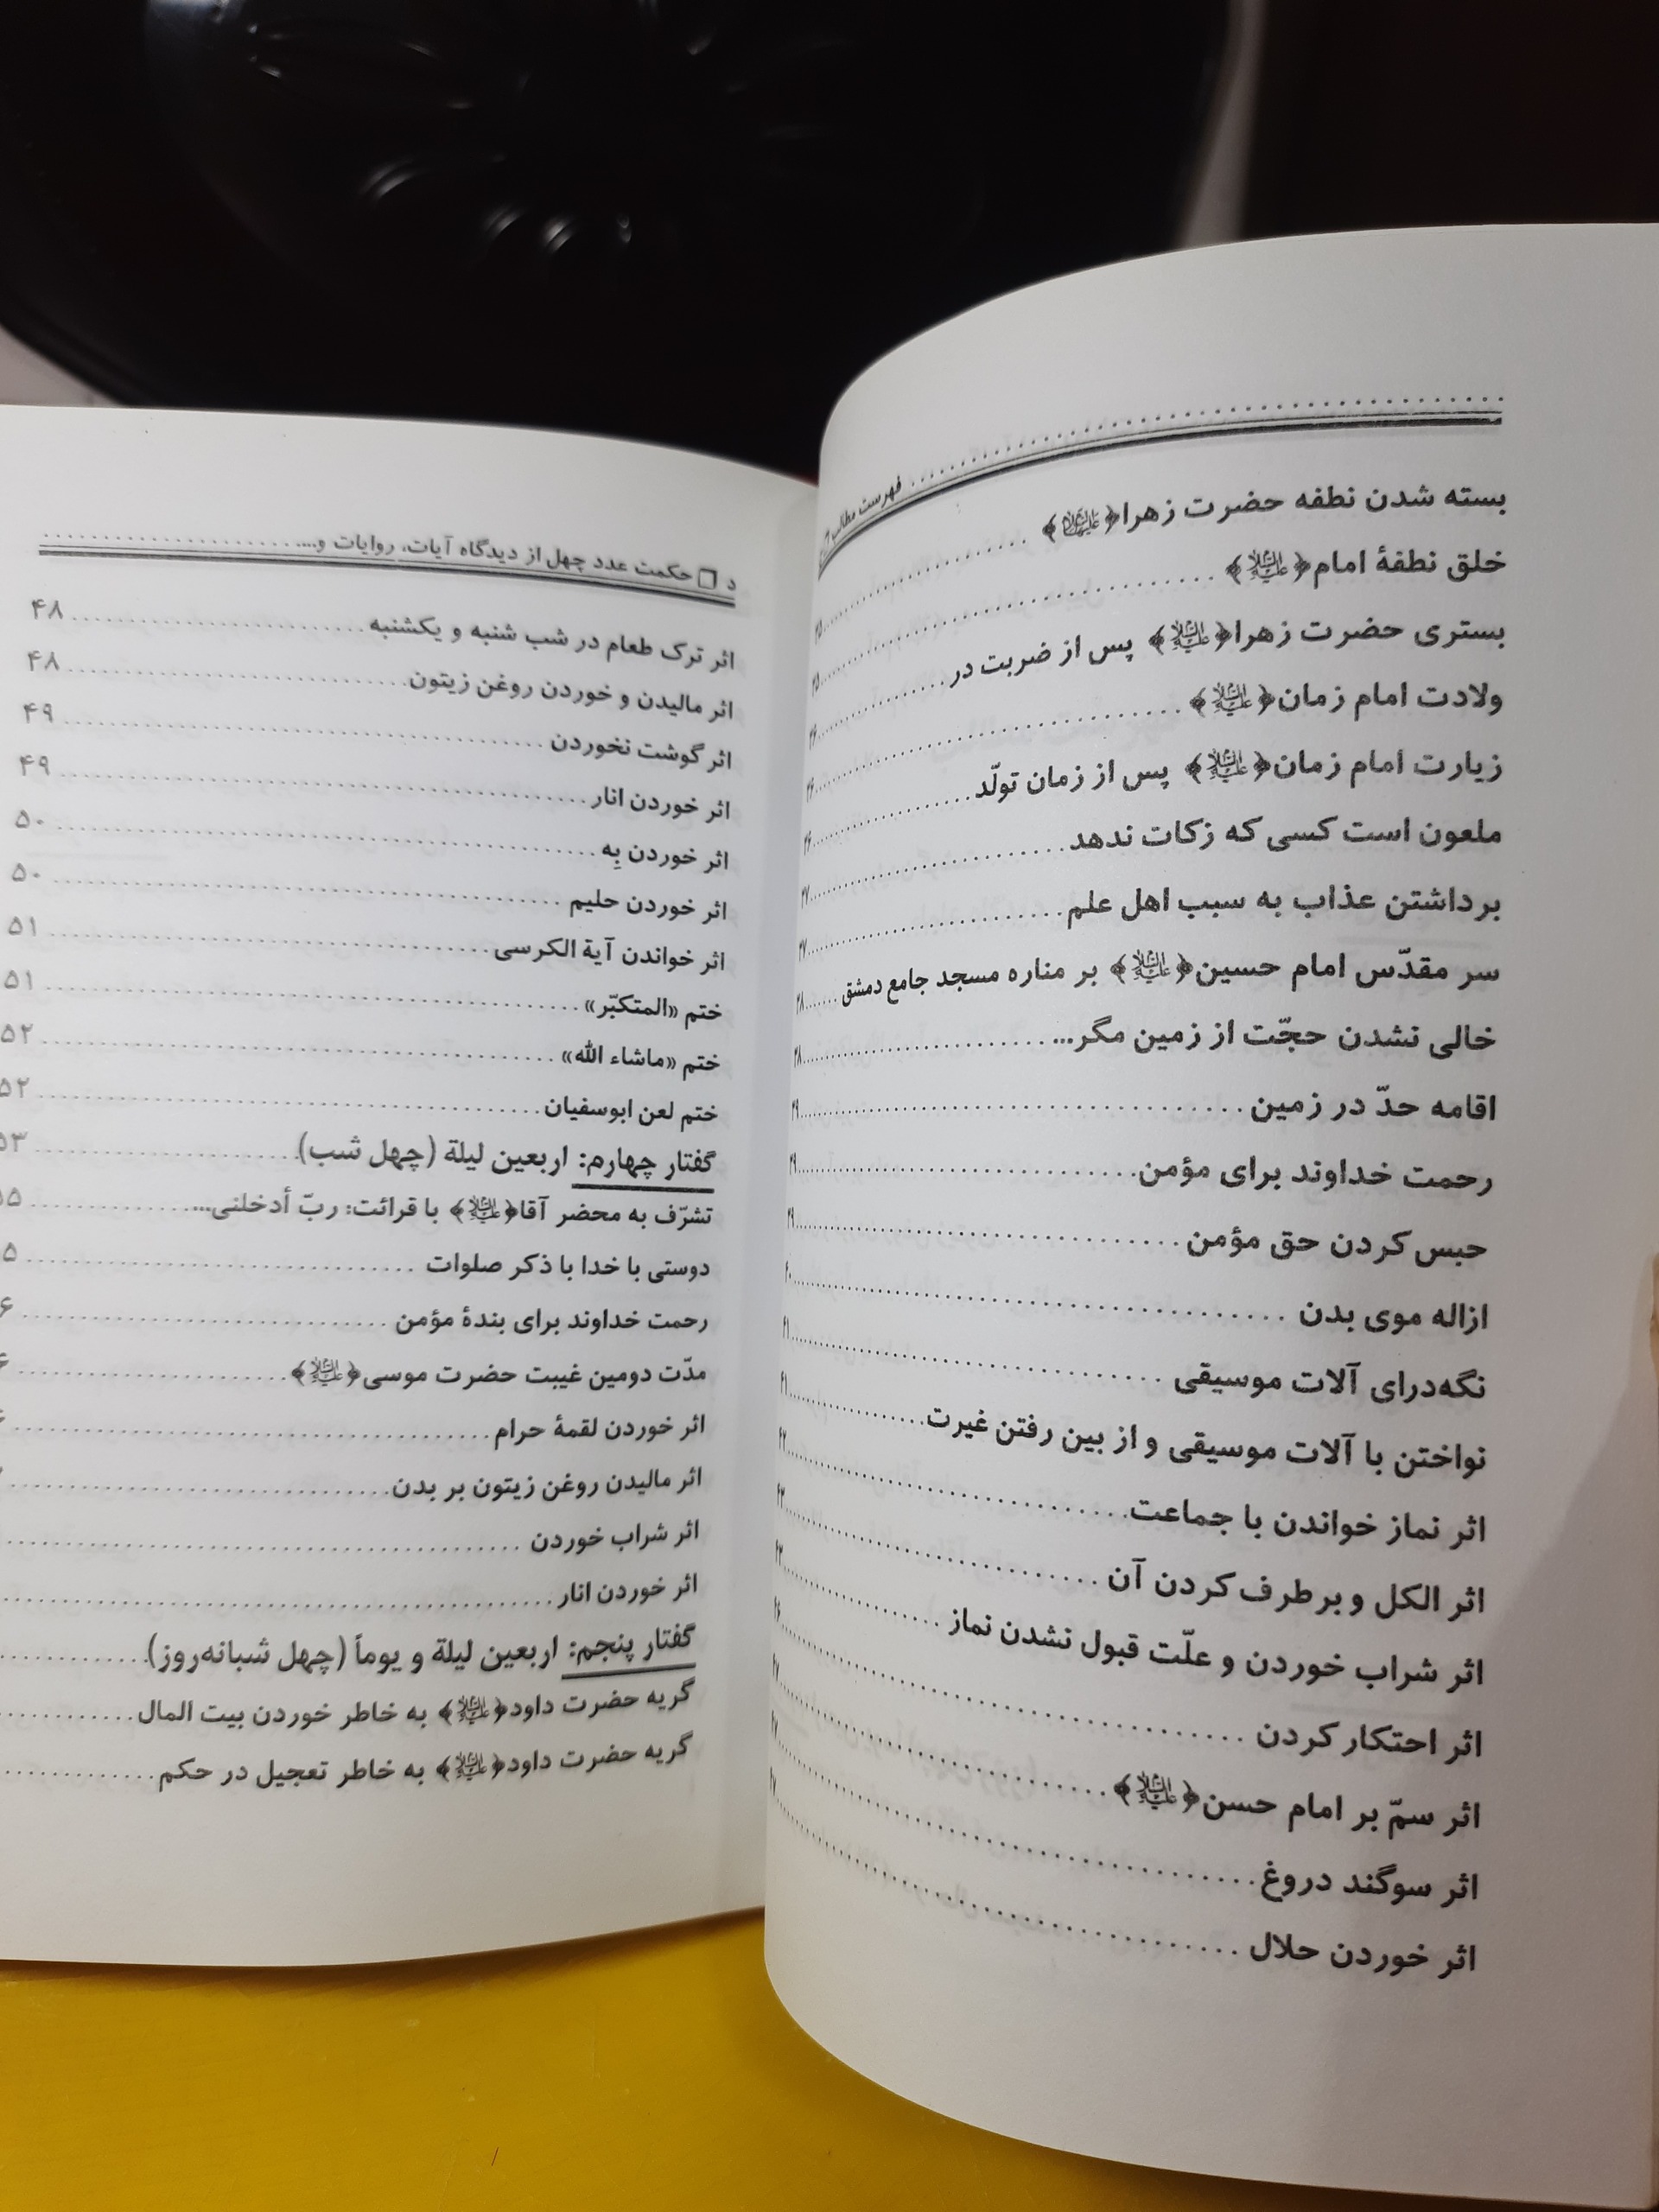 فهرست مطالب
بسته شدن نطفه حضرت زهرا﴿علیها السلام﴾
خلق نطفهٔ امام﴿علیه السلام﴾
بستری حضرت زهرا﴿علیها السلام﴾ پس از ضربت در
ولادت امام زمان﴿علیه السلام﴾
زیارت امام زمان﴿علیه السلام﴾ پس از زمان تولّد
ملعون است کسی که زکات ندهد
برداشتن عذاب به سبب اهل علم
سر مقدّس امام حسین﴿علیه السلام﴾ بر مناره مسجد جامع دمشق
خالی نشدن حجّت از زمین مگر...
اقامه حدّ در زمین
رحمت خداوند برای مؤمن
حبس کردن حق مؤمن
ازاله موی بدن
نگه‌درای آلات موسیقی
نواختن با آلات موسیقی و از بین رفتن غیرت
اثر نماز خواندن با جماعت
اثر الکل و برطرف کردن آن
اثر شراب خوردن و علّت قبول نشدن نماز
اثر احتکار کردن
اثر سمّ بر امام حسن﴿علیه السلام﴾
اثر سوگند دروغ
اثر خوردن حلال
د ❒ حکمت عدد چهل از دیدگاه آیات، روایات و...
اثر ترک طعام در شب شنبه و یکشنبه ۴۸
اثر مالیدن و خوردن روغن زیتون ۴۸
اثر گوشت نخوردن ۴۹
اثر خوردن انار ۴۹
اثر خوردن بِه ۵۰
اثر خوردن حلیم ۵۰
اثر خواندن آیة الکرسی ۵۱
ختم «المتکبّر» ۵۱
ختم «ماشاء الله» ۵۲
ختم لعن ابوسفیان ۵۲
گفتار چهارم: اربعین لیلة (چهل شب) ۵۳
تشرّف به محضر آقا﴿علیه السلام﴾ با قرائت: ربّ أدخلنی...
دوستی با خدا با ذکر صلوات
رحمت خداوند برای بندهٔ مؤمن
مدّت دومین غیبت حضرت موسی﴿علیه السلام﴾
اثر خوردن لقمهٔ حرام
اثر مالیدن روغن زیتون بر بدن
اثر شراب خوردن
اثر خوردن انار
گفتار پنجم: اربعین لیلة و یوماً (چهل شبانه‌روز)
گریه حضرت داود﴿علیه السلام﴾ به خاطر خوردن بیت المال
گریه حضرت داود﴿علیه السلام﴾ به خاطر تعجیل در حکم